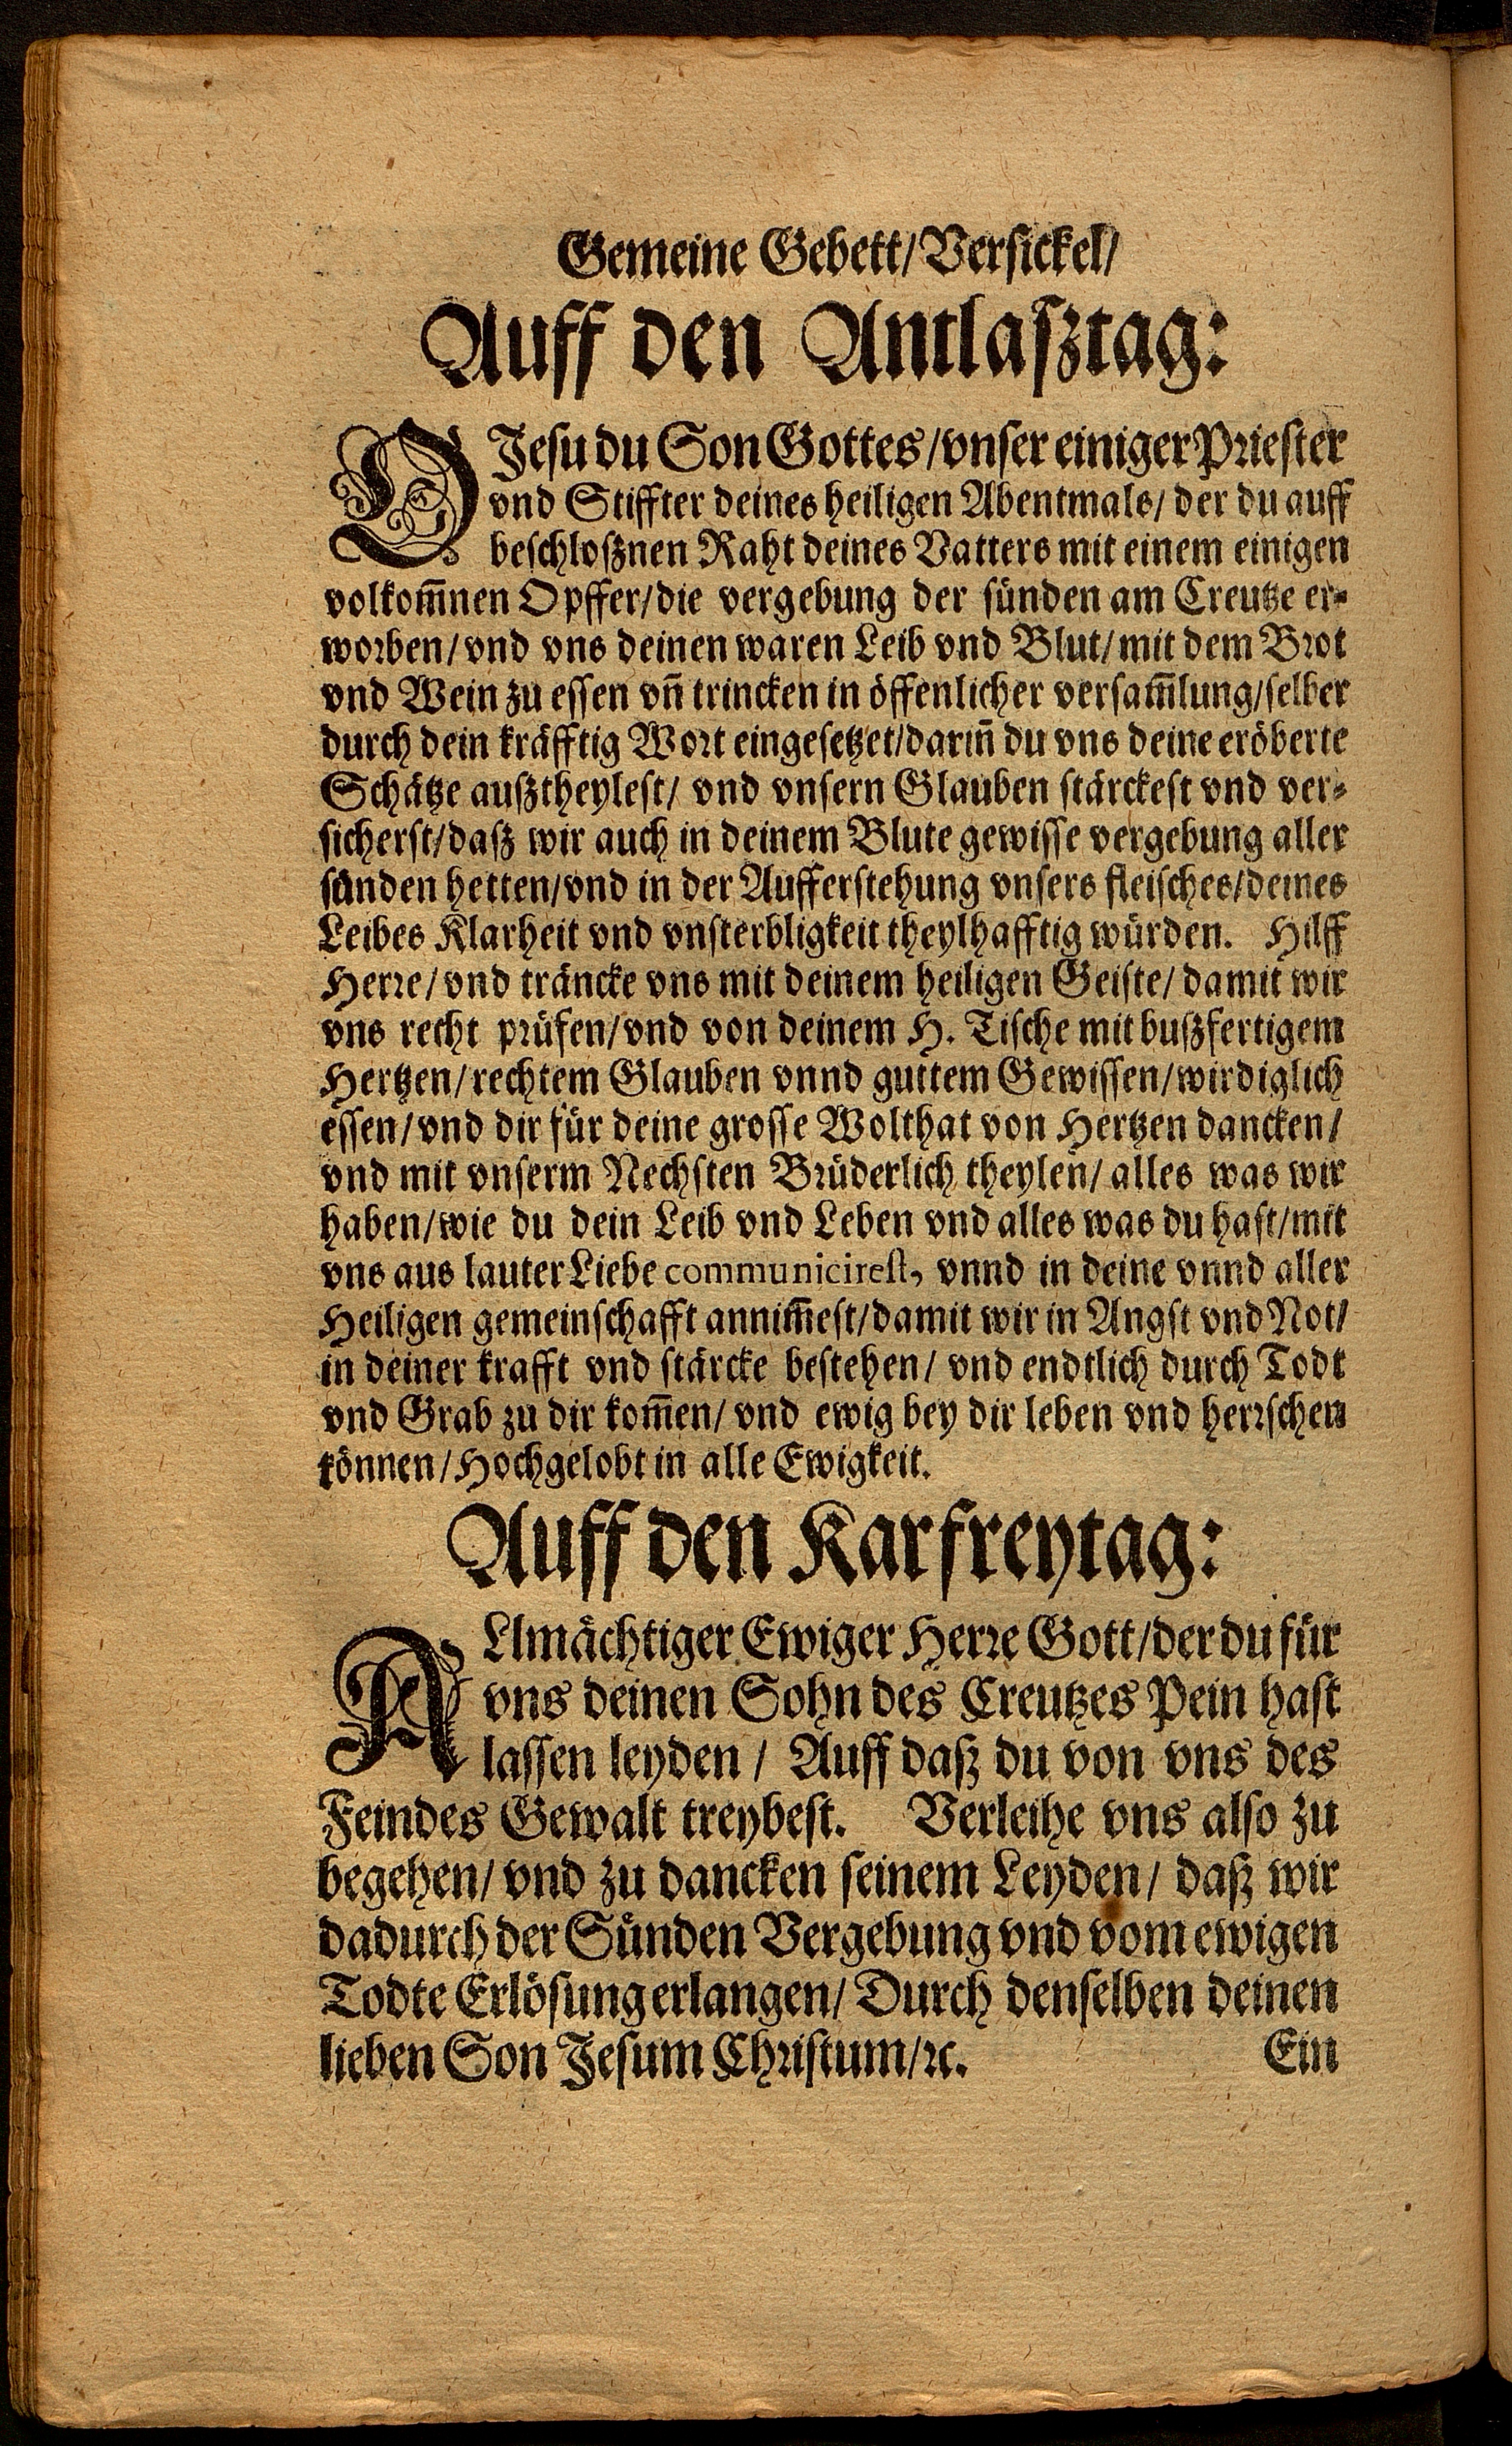 Gemeine Gebett/Versickel/
Auff den Antlaßtag:
O Jesu du Son Gottes/vnser einiger Priester
vnd Stiffter deines heiligen Abentmals/ der du auff
beschloßnen Raht deines Vatters mit einem einigen
volkom̃nen Opffer/die vergebung der sünden am Creutze er-
worben/vnd vns deinen waren Leib vnd Blut/mit dem Brot
vnd Wein zu essen vn̄ trincken in öffenlicher versam̃lung/selber
durch dein kräfftig Wort eingesetzet/darin̄ du vns deine eröberte
Schätze außtheylest/ vnd vnsern Glauben stärckest vnd ver-
sicherst/daß wir auch in deinem Blute gewisse vergebung aller
sünden hetten/vnd in der Aufferstehung vnsers fleisches/deines
Leibes Klarheit vnd vnsterbligkeit theylhafftig würden. Hilff
Herre/vnd träncke vns mit deinem heiligen Geiste/damit wir
vns recht prüfen/vnd von deinem H. Tische mit bußfertigem
Hertzen/rechtem Glauben vnnd guttem Gewissen/wirdiglich
essen/vnd dir für deine grosse Wolthat von Hertzen dancken/
vnd mit vnserm Nechsten Brüderlich theylen/alles was wir
haben/wie du dein Leib vnd Leben vnd alles was du hast/mit
vns aus lauter Liebe communicirest, vnnd in deine vnnd aller
Heiligen gemeinschafft annim̃est/damit wir in Angst vnd Not/
in deiner krafft vnd stärcke bestehen/ vnd endtlich durch Todt
vnd Grab zu dir kom̃en/ vnd ewig bey dir leben vnd herrschen
können/Hochgelobt in alle Ewigkeit.
Auff den Karfreytag:
ALlmächtiger Ewiger Herre Gott/der du für
vns deinen Sohn des Creutzes Pein hast
lassen leyden/ Auff daß du von vns des
Feindes Gewalt treybest. Verleihe vns also zu
begehen/vnd zu dancken seinem Leyden/ daß wir
dadurch der Sünden Vergebung vnd vom ewigen
Todte Erlösung erlangen/Durch denselben deinen
lieben Son Jesum Christum/ꝛc. Ein